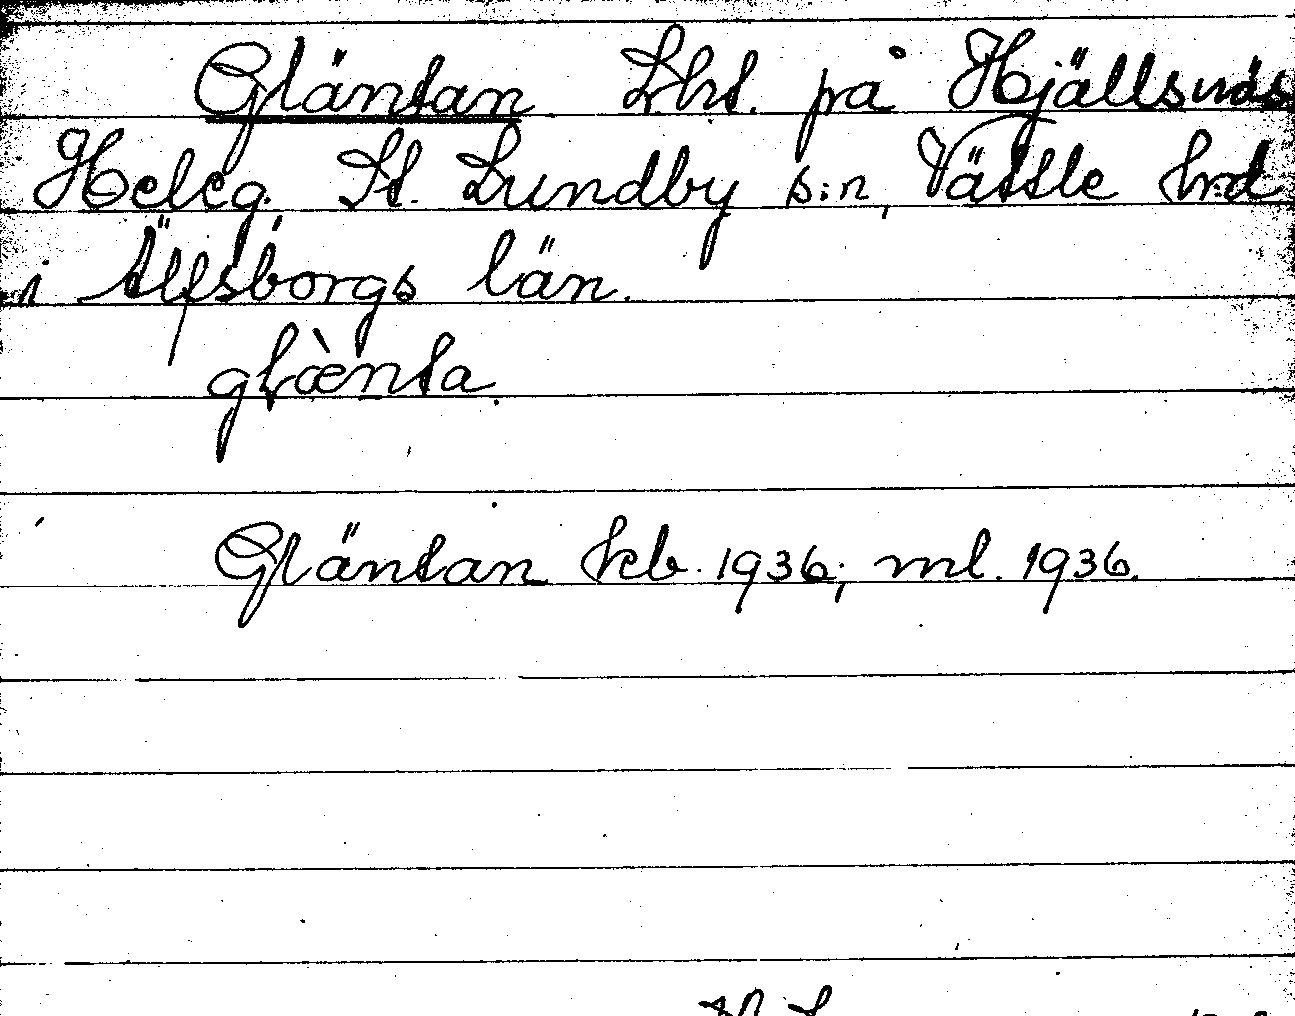 Gläntan Lht. på Hjällsnäs
Heleg. St. Lundby s:n, Vättle hrd
i Älfsborgs län.
glæ̀nta.
Gläntan kb. 1936; ml. 1936.